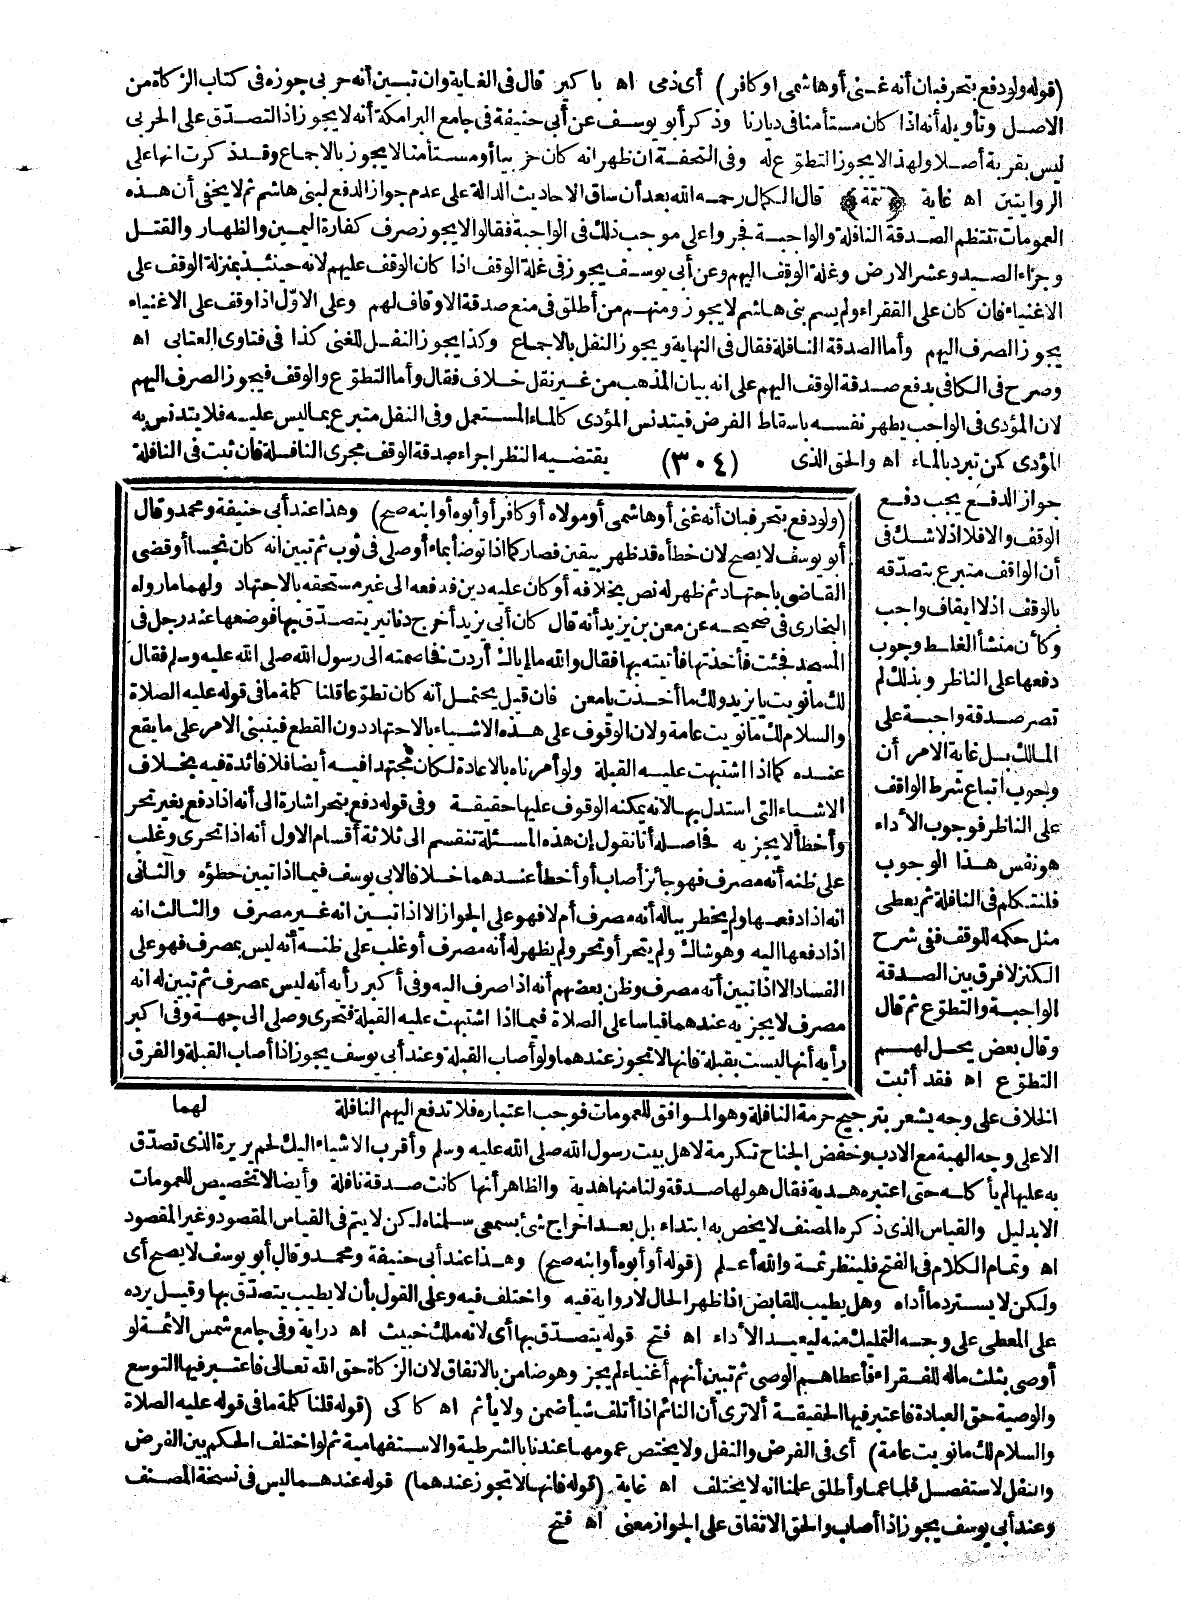 (قوله ولو دفع بتحر فبان أنه غنى أو هاشمى او كافر) أى ذمى اه باكير قال فى الغاية وان تبين أنه حربى جوزه فى كتاب الزكاة من
الاصل وتأويله أنه اذا كان مستأمنا فى ديارنا وذكر أبو يوسف عن أبى حنيفة فى جامع البرامكة أنه لا يجوز اذ التصدّق على الحربى
ليس بقربة أصلا ولهذا لا يجوز التطوّع له وفى التحفة ان ظهر انه كان حربيا أو مستأمنا لا يجوز بالاجماع وقد ذكرت انها على
الروايتين اه غاية ﴿تتمة﴾ قال الكمال رحمه الله بعد أن ساق الاحاديث الدالة على عدم جواز الدفع لبنى هاشم ثم لا يخفى أن هذه
العمومات تنتظم الصدقة النافلة والواجبة فجروا على موجب ذلك فى الواجبة فقالوا لا يجوز صرف كفارة اليمين والظهار والقتل
وجزاء الصيد وعشر الارض وغلة الوقف اليهم وعن أبى يوسف يجوز فى غلة الوقف اذا كان الوقف عليهم لانه حينئذ بمنزلة الوقف على
الاغنياء فان كان على الفقراء ولم يسم بنى هاشم لا يجوز ومنهم من أطلق فى منع صدقة الاوقاف لهم وعلى الاوّل اذا وقف على الاغنياء
يجوز الصرف اليهم وأما الصدقة النافلة فقال فى النهاية ويجوز النفل بالاجماع وكذا يجوز النفل للغنى كذا فى فتاوى العتابى اه
وصرح فى الكافى بدفع صدقة الوقف اليهم على انه بيان المذهب من غير نقل خلاف فقال وأما التطوّع والوقف فيجوز الصرف اليهم
لان المؤدى فى الواجب يطهر نفسه باسقاط الفرض فيتدنس المؤدى كالماء المستعمل وفى النفل متبرع بما ليس عليه فلا يتدنس به
المؤدى كمن تبرد بالماء اه والحق الذى (٣٠٤) يقتضيه النظر اجراء صدقة الوقف مجرى النافلة فان ثبت فى النافلة
جواز الدفع يجب دفع
الوقف والافلا اذ لا شك فى
أن الواقف متبرع بتصدّقه
بالوقف اذ لا ايقاف واجب
وكأن منشأ الغلط وجوب
دفعها على الناظر وبذلك لم
تصر صدقة واجبة على
المالك بل غاية الامر أن
وجوب اتباع شرط الواقف
على الناظر فوجوب الأداء
هو نفس هذا الوجوب
فلنتكلم فى النافلة ثم يعطى
مثل حكمه للوقف ففى شرح
الكنز لا فرق بين الصدقة
الواجبة والتطوّع ثم قال
وقال بعض يحل لهم
التطوّع اه فقد أثبت
الخلاف على وجه يشعر بترجيح حرمة النافلة وهو الموافق للعمومات فوجب اعتباره فلا تدفع اليهم النافلة لهما
الا على وجه الهبة مع الادب وخفض الجناح تكرمة لاهل بيت رسول الله صلى الله عليه وسلم وأقرب الاشياء اليك لحم بريرة الذى تصدّق
به عليها لم يأكله حتى اعتبره هدية فقال هو لها صدقة ولنا منها هدية والظاهر أنها كانت صدقة نافلة وأيضا لا تخصيص للعمومات
الا بدليل والقياس الذى ذكره المصنف لا يخص به ابتداء بل بعد اخراج شئ بسمعى سلمناه لكن لا يتم فى القياس المقصود وغير المقصود
اه وتمام الكلام فى الفتح فلينظر ثمة والله أعلم (قوله أو أبوه أو ابنه صح) وهذا عند أبى حنيفة ومحمد وقال أبو يوسف لا يصح أى
ولكن لا يسترد ما أداه وهل يطيب للقابض اذا ظهر الحال لا رواية فيه واختلف فيه وعلى القول بأن لا يطيب يتصدّق بها وقيل يرده
على المعطى على وجه التمليك منه ليعيد الأداء اه فتح قوله يتصدّق بها أى لانه ملك خبيث اه دراية وفى جامع شمس الائمة لو
أوصى بثلث ماله للفقراء فأعطاهم الوصى ثم تبين أنهم أغنياء لم يجز وهو ضامن بالاتفاق لان الزكاة حق الله تعالى فاعتبر فيها التوسع
والوصية حق العبادة فاعتبر فيها الحقيقة ألا ترى أن النائم اذا أتلف شيأ ضمن ولا يأثم اه كاكى (قوله قلنا كلمة ما فى قوله عليه الصلاة
والسلام لك ما نويت عامة) أى فى الفرض والنفل ولا يختص عمومها عندنا بالشرطية والاستفهامية ثم لو اختلف الحكم بين الفرض
والنفل لاستفصل فلما عما وأطلق علمنا انه لا يختلف اه غاية (قوله فانها لا تجوز عندهما) قوله عندهما ليس فى نسخة المصنف
وعند أبى يوسف يجوز اذا أصاب والحق الاتفاق على الجواز معنى اه فتح
(ولو دفع بتحر فبان أنه غنى أو هاشمى أو مولاه أو كافر أو أبوه أو ابنه صح) وهذا عند أبى حنيفة ومحمد وقال
أبو يوسف لا يصح لان خطأه قد ظهر بيقين فصار كما اذا توضأ بماء أو صلى فى ثوب ثم تبين انه كان نجسا أو قضى
القاضى باجتهاد ثم ظهر له نص بخلافه أو كان عليه دين فدفعه الى غير مستحقه بالاجتهاد ولهما ما رواه
البخارى فى صحيحه عن معن بن يزيد أنه قال كان أبى يزيد أخرج دنانير يتصدّق بها فوضعها عند رجل فى
المسجد فجئت فأخذتها فأتيته بها فقال والله ما إياك أردت فخاصمته الى رسول الله صلى الله عليه وسلم فقال
لك ما نويت يا يزيد ولك ما أخذت يا معن فان قيل يحتمل أنه كان تطوّعا قلنا كلمة ما فى قوله عليه الصلاة
والسلام لك ما نويت عامة ولان الوقوف على هذه الاشياء بالاجتهاد دون القطع فينبنى الامر على ما يقع
عنده كما اذا اشتبهت عليه القبلة ولو أمرناه بالاعادة لكان مجتهدا فيه أيضا فلا فائدة فيه بخلاف
الاشياء التى استدل بها لانه يمكنه الوقوف عليها حقيقة وفى قوله دفع بتحر اشارة الى أنه اذا دفع بغير تحر
وأخطأ لا يجزيه فحاصله أنا نقول إن هذه المسئلة تنقسم الى ثلاثة أقسام الاول أنه اذا تحرى وغلب
على ظنه أنه مصرف فهو جائز أصاب أو أخطأ عندهما خلافا لابى يوسف فيما اذا تبين خطؤه والثانى
انه اذا دفعها ولم يخطر بباله أنه مصرف أم لا فهو على الجواز الا اذا تبين انه غير مصرف والثالث انه
اذا دفعها اليه وهو شاك ولم يتحر أو تحر ولم يظهر له أنه مصرف أو غلب على ظنه أنه ليس بمصرف فهو على
الفساد الا اذا تبين أنه مصرف وظن بعضهم أنه اذا صرف اليه وفى أكبر رأيه أنه ليس بمصرف ثم تبين له انه
مصرف لا يجزيه عندهما قياسا على الصلاة فيما اذا اشتبهت عليه القبلة فتحرى وصلى الى جهة وفى اكبر
رأيه أنها ليست بقبلة فانها لا تجوز عندهما ولو أصاب القبلة وعند أبى يوسف يجوز اذا أصاب القبلة والفرق